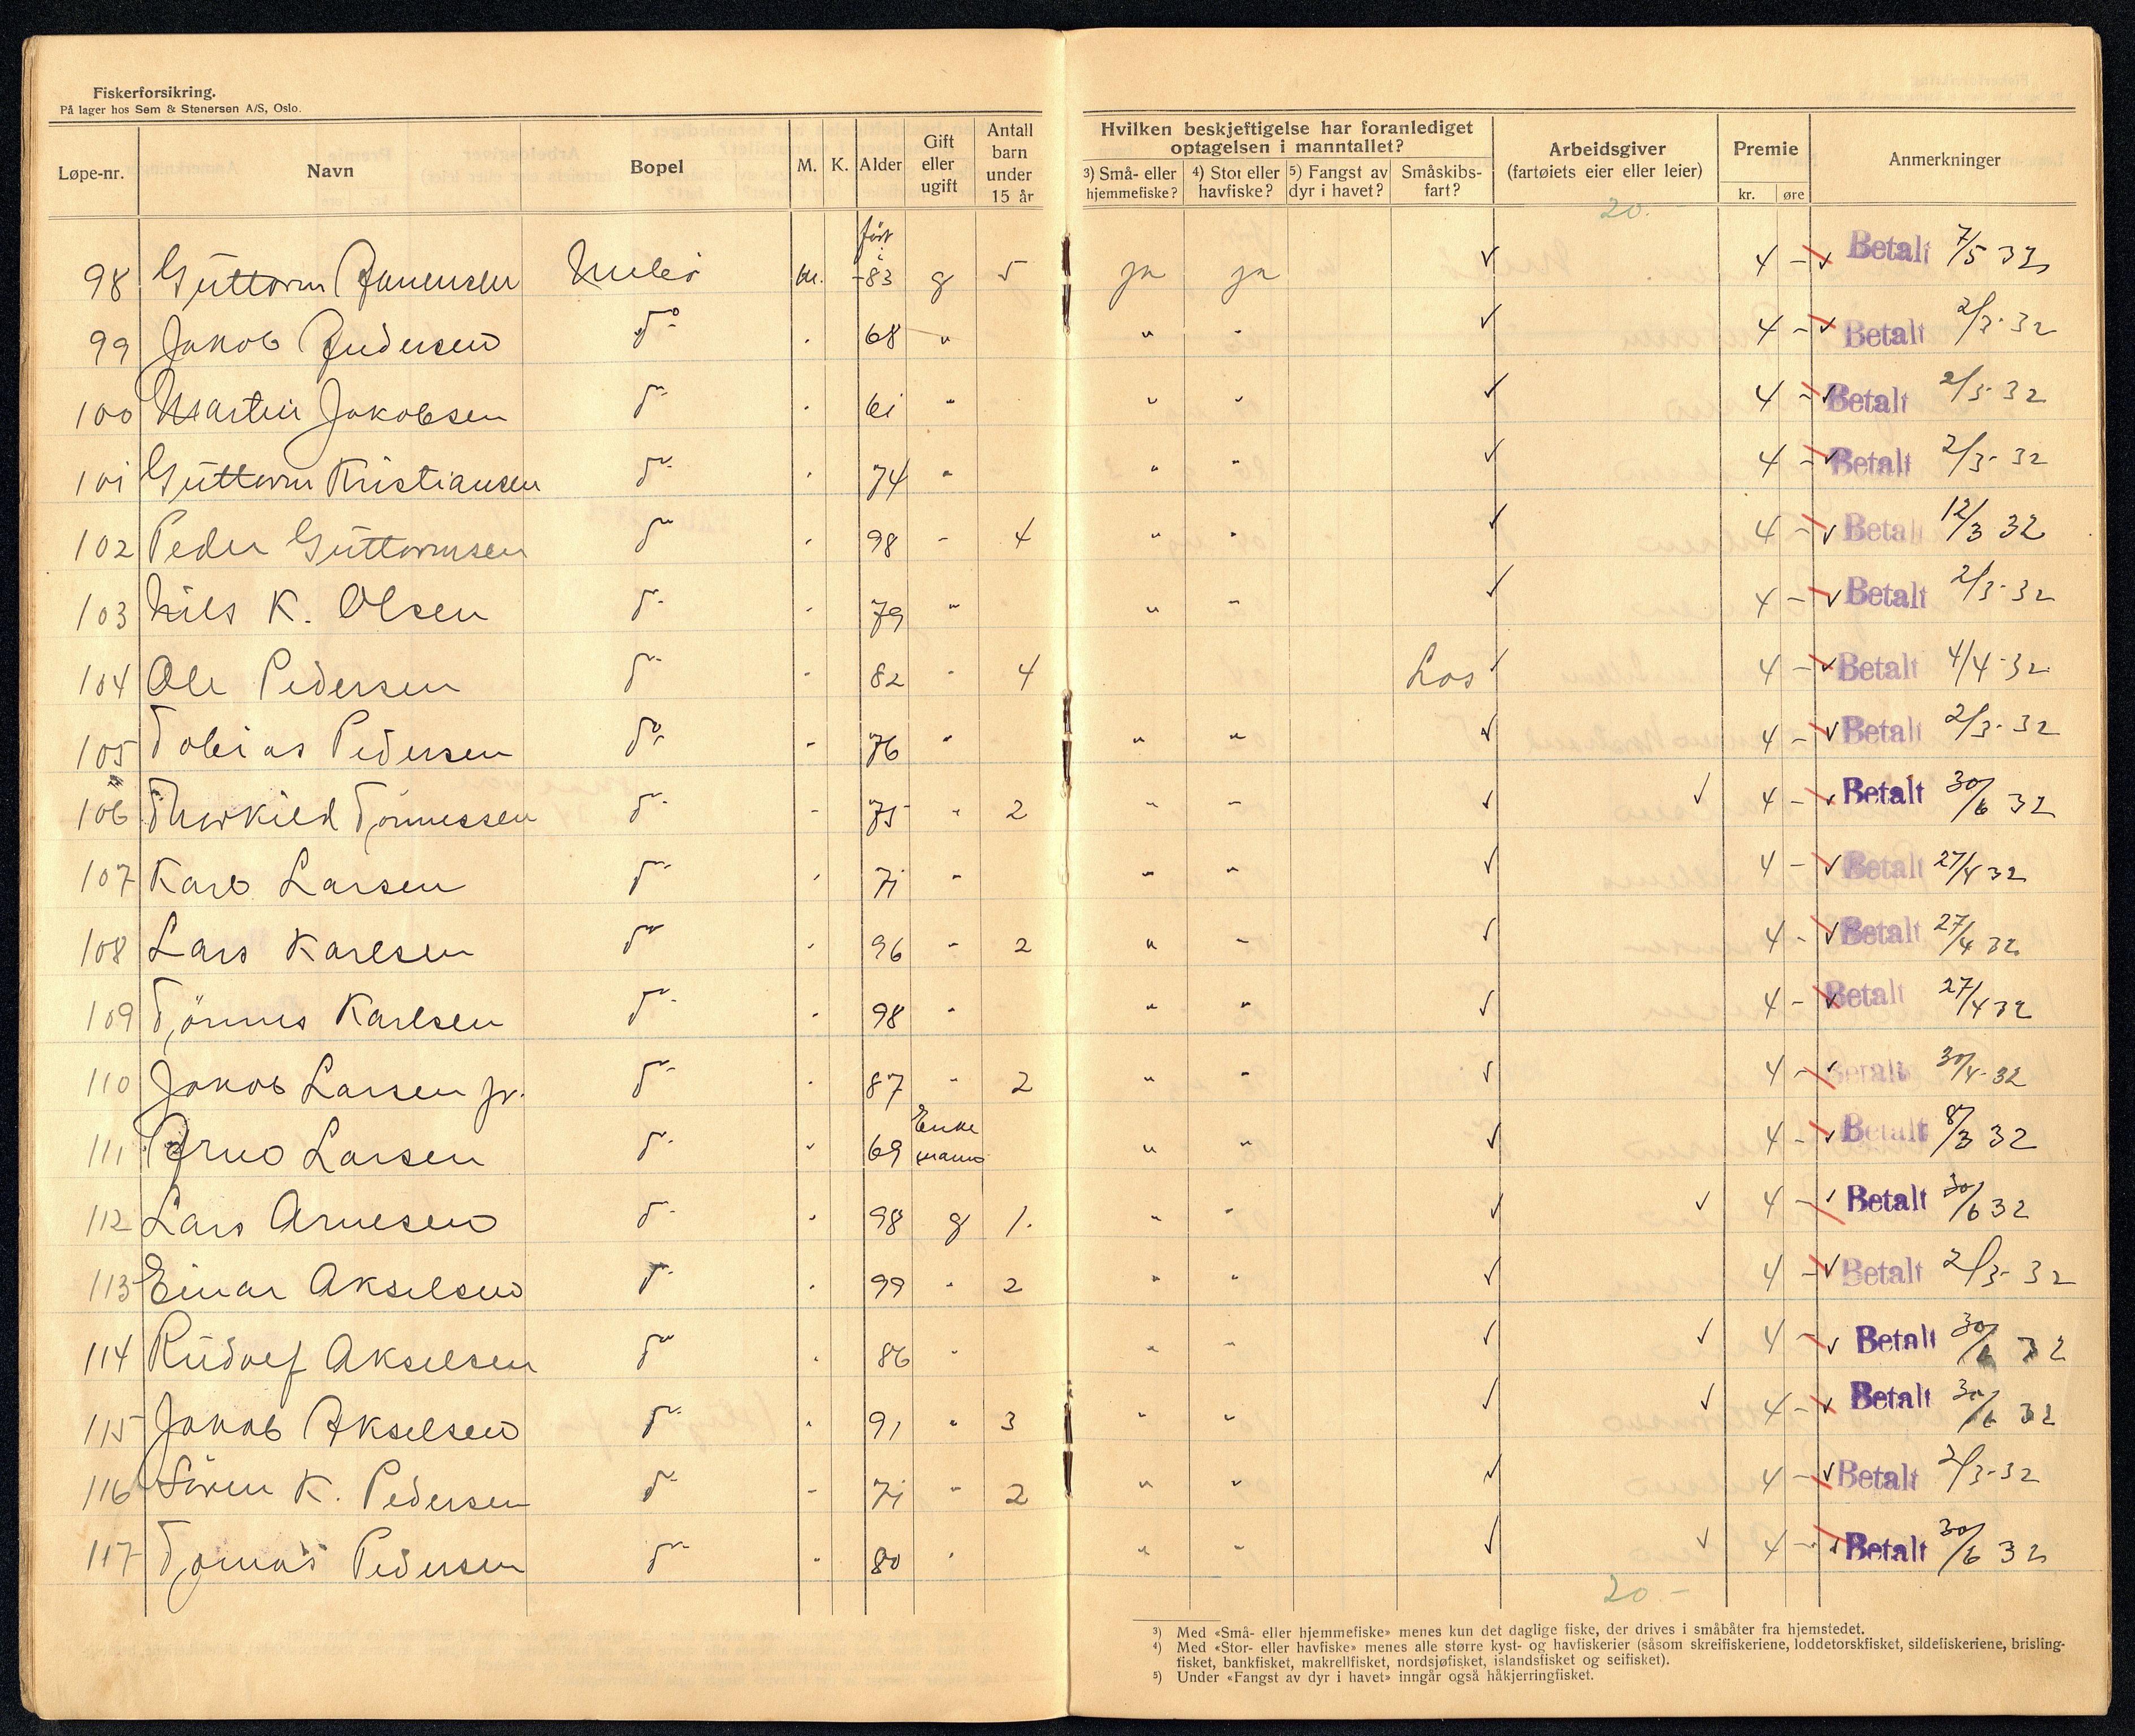 Fiskerforsikring.
På lager hos Sem & Stenersen A/S, Oslo.
Løpe-nr. Navn Bopel M. K. Alder Gift eller ugift Antall barn under 15 år
Hvilken beskjeftigelse har foranlediget optagelsen i manntallet?
3) Små- eller hjemmefiske? 4) Stor eller havfiske? 5) Fangst av dyr i havet? Småskibs-fart?
Arbeidsgiver (fartøiets eier eller leier) Premie kr. øre Anmerkninger
20.-
født i
98 Guttorm m. -83 g 5 ja ja ✓ 4 - ✓ Betalt 7/5 32
99 Jakob Andersen do - 68 " " " ✓ 4 - ✓ Betalt 2/3-32
100 Martin Jakobsen do - 61 " " " ✓ 4 - ✓ Betalt 2/3-32
101 Guttorm Kristiansen do - 74 " " " ✓ 4 - ✓ Betalt 2/3-32
102 Peder Guttormsen do - 98 " 4 " " ✓ 4 - ✓ Betalt 12/3 32
103 Nils K. Olsen do - 79 " " " ✓ 4 - ✓ Betalt 2/3-32
104 Ole Pedersen do - 82 " 4 Los ✓ 4 - ✓ Betalt 4/4-32
105 Tobias Pedersen do - 76 " " " ✓ 4 - ✓ Betalt 2/3-32
106 Thorkild Tönnessen do - 75 " 2 " " ✓ ✓ 4 - ✓ Betalt 30/6 32
107 Karl Larsen do - 71 " " " ✓ 4 - ✓ Betalt 27/4 32
108 Lars Karlsen do - 96 " 2 " " ✓ 4 - ✓ Betalt 27/4 32
109 Tönnes Karlsen do - 98 " " " ✓ 4 - ✓ Betalt 27/4 32
110 Jakob Larsen jr. do - 87 " 2 " " ✓ 4 - ✓ Betalt 30/4-32
111 Arne Larsen do - 69 Enkemann " " ✓ 4 - ✓ Betalt 8/3 32
112 Lars Arnesen do - 98 g 1. " " ✓ ✓ 4 - ✓ Betalt 30/6 32
113 Einar Akselsen do - 99 " 2 " " ✓ 4 - ✓ Betalt 2/3-32
114 Rudolf Akselsen do - 86 " " " ✓ ✓ 4 - ✓ Betalt 30/6 32
115 Jakob Akselsen do - 91 " 3 " " ✓ ✓ 4 - ✓ Betalt 30/6 32
116 Sören K. Pedersen do - 71 " 2 " " ✓ 4 - ✓ Betalt 2/3-32
117 Pedersen do - 80 " " " ✓ ✓ 4 - ✓ Betalt 30/6 32
20.-
3) Med «Små- eller hjemmefiske» menes kun det daglige fiske, der drives i småbåter fra hjemstedet.
4) Med «Stor- eller havfiske» menes alle større kyst- og havfiskerier (såsom skreifiskeriene, loddetorskfisket, sildefiskeriene, brisling-
fisket, bankfisket, makrellfisket, nordsjøfisket, islandsfisket og seifisket).
5) Under «Fangst av dyr i havet» inngår også håkjerringfisket.